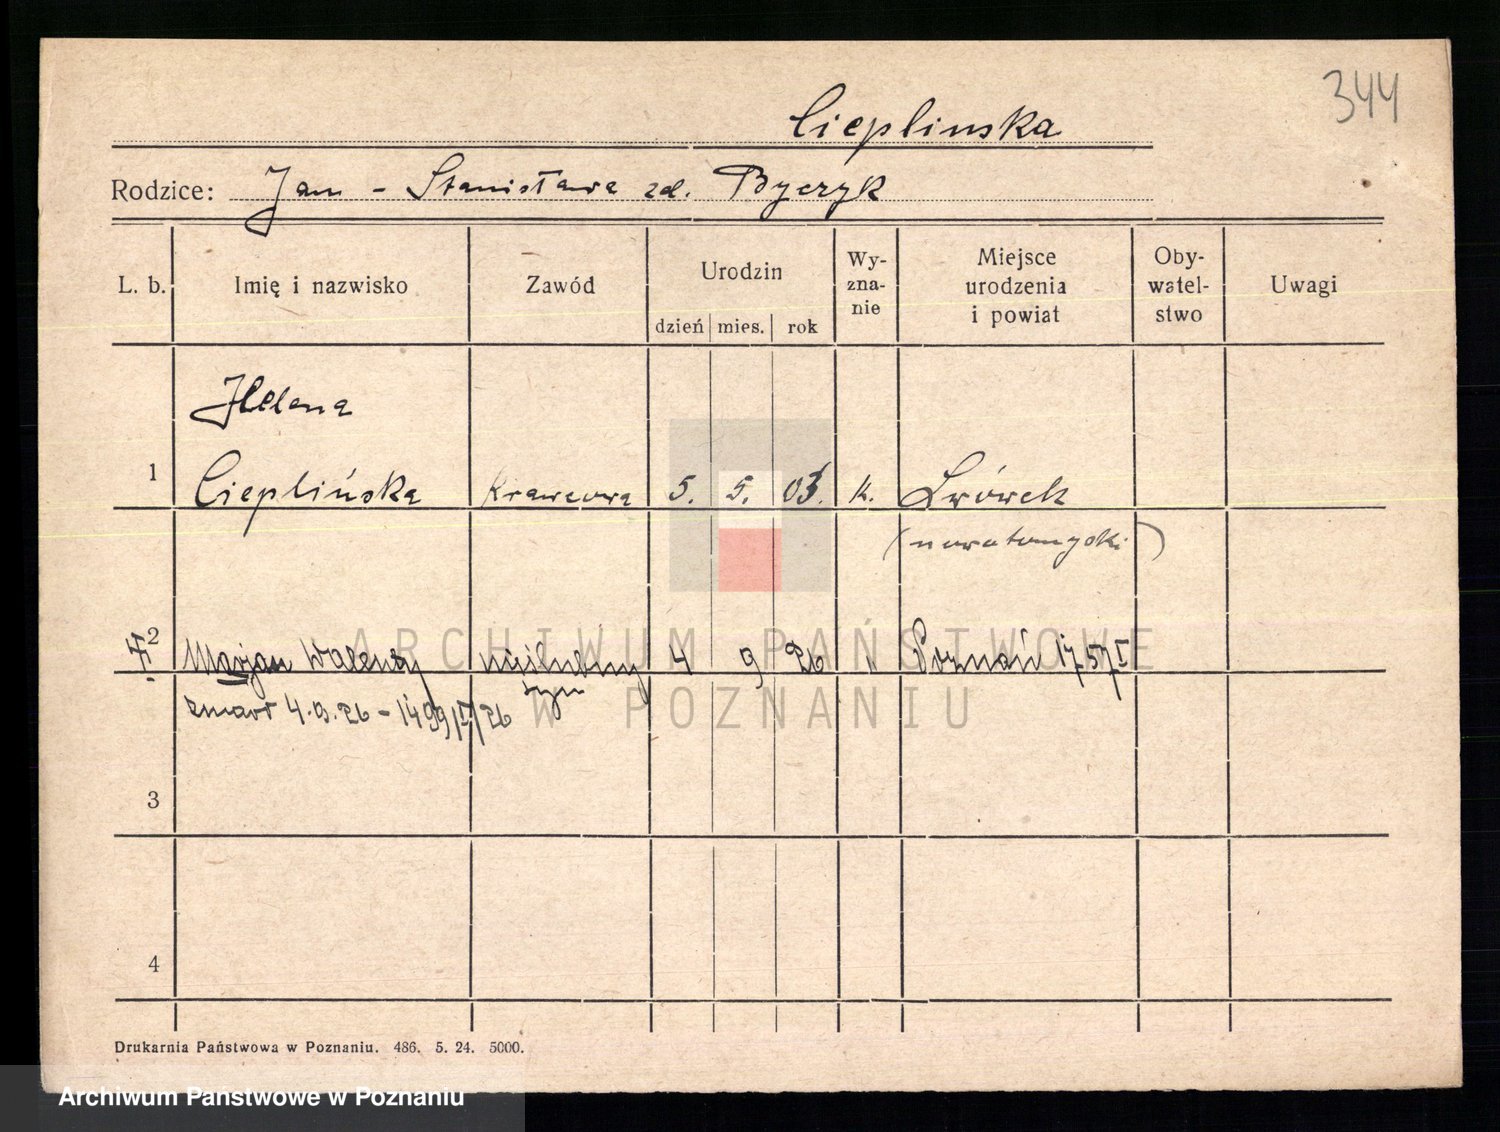 344
Cieplinska
Rodzice: Jan - Stanisława zd. Byczyk
L. b. Imię i nazwisko Zawód Urodzin dzień mies. rok Wy-zna-nie Miejsce urodzenia i powiat Oby-watel-stwo Uwagi
Helena
1 Cieplińska Krawcowa 5. 5. 03. k. Lwówek
(nowotomyski)
2 Marjan Walenty nieślubny 4 9 26 " Poznań 1757 I
syn
zmarł 4.9.26 - 1499/I/26
3
4
Drukarnia Państwowa w Poznaniu. 486. 5. 24. 5000.
ARCHIWUM PAŃSTWOWE
W POZNANIU
Archiwum Państwowe w Poznaniu